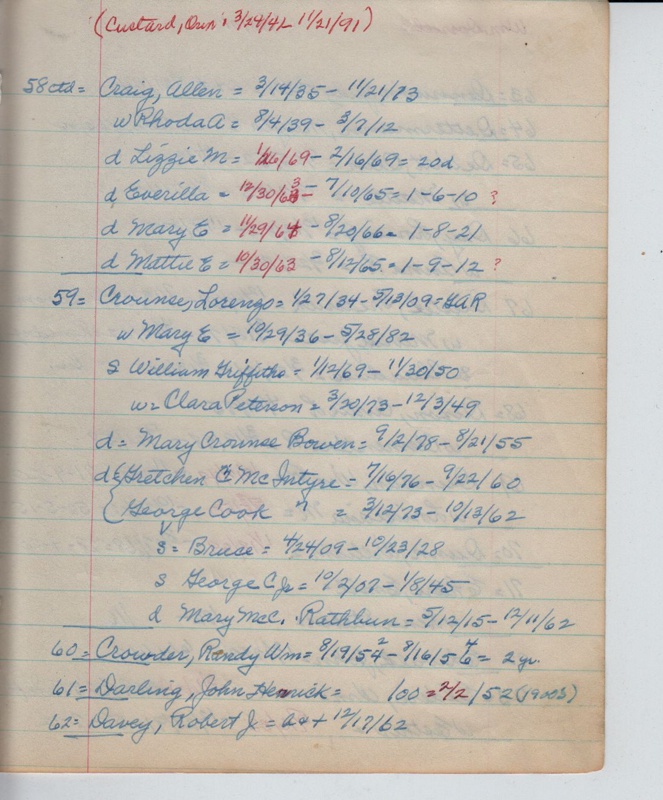 (Custard, Orin: 3/24/42 11/21/91)
58ctd= Craig, Allen = 3/14/35 - 11/21/73
w Rhoda A = 8/4/39 - 3/7/12
d Lizzie M = 1/26/69 - 2/16/69 = 20d
d Everilla = 12/30/63 - 7/10/65 = 1-6-10 ?
d Mary E = 11/29/64 - 8/20/66 = 1-8-21
d Mattie E = 10/30/63 - 8/12/65 = 1-9-12 ?
59= Crounse, Lorenzo = 1/27/34 - 5/13/09 = GAR
w Mary E = 10/29/36 - 5/28/82
S William Griffiths = 1/12/69 - 11/30/50
w = Clara Peterson = 3/20/73 - 12/3/49
d = Mary Crounse Bowen = 9/2/78 - 8/21/55
d { Gretchen C McIntyre = 7/16/76 - 9/22/60
{ George Cook " = 3/12/73 - 10/13/62
s = Bruce = 4/24/09 - 10/23/28
s George C. Jr = 10/2/07 - 1/8/45
d Mary McC. Rathbun = 5/12/15 - 12/11/62
60= Crowder, Randy Wm = 8/19/54 - 8/16/56 = 2 yr.
61= Darling, John Henrick = 100 = 2/2/52 (1900s)
62= Davey, Robert J = 64+ 12/17/62